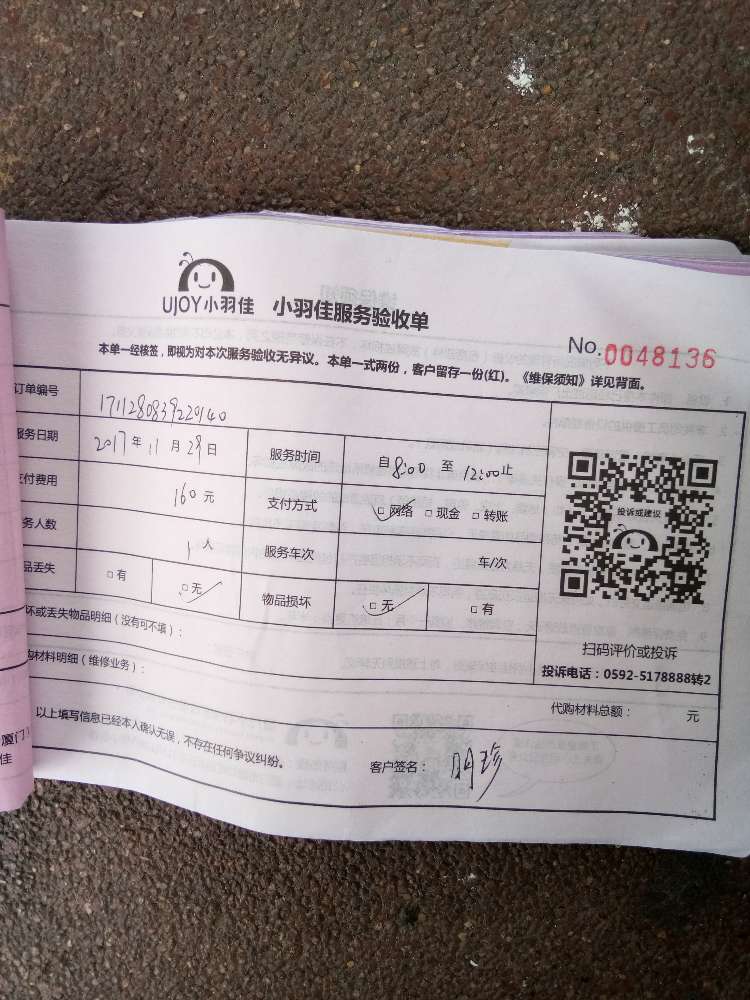 UJOY小羽佳 小羽佳服务验收单
No.0048136
本单一经核签，即视为对本次服务验收无异议。本单一式两份，客户留存一份(红)。《维保须知》详见背面。
订单编号
服务日期 2017年11月29日 服务时间 自8:00至12:00止
付费用 160元 支付方式 □网络 □现金 □转账
务人数 1人 服务车次 车/次
品丢失 □有 □无 物品损坏 □无 □有
坏或丢失物品明细（没有可不填）：
购材料明细（维修业务）：
投诉或建议
扫码评价或投诉
投诉电话：0592-5178888转2
代购材料总额： 元
以上填写信息已经本人确认无误，不存在任何争议纠纷。 客户签名：
厦门
佳